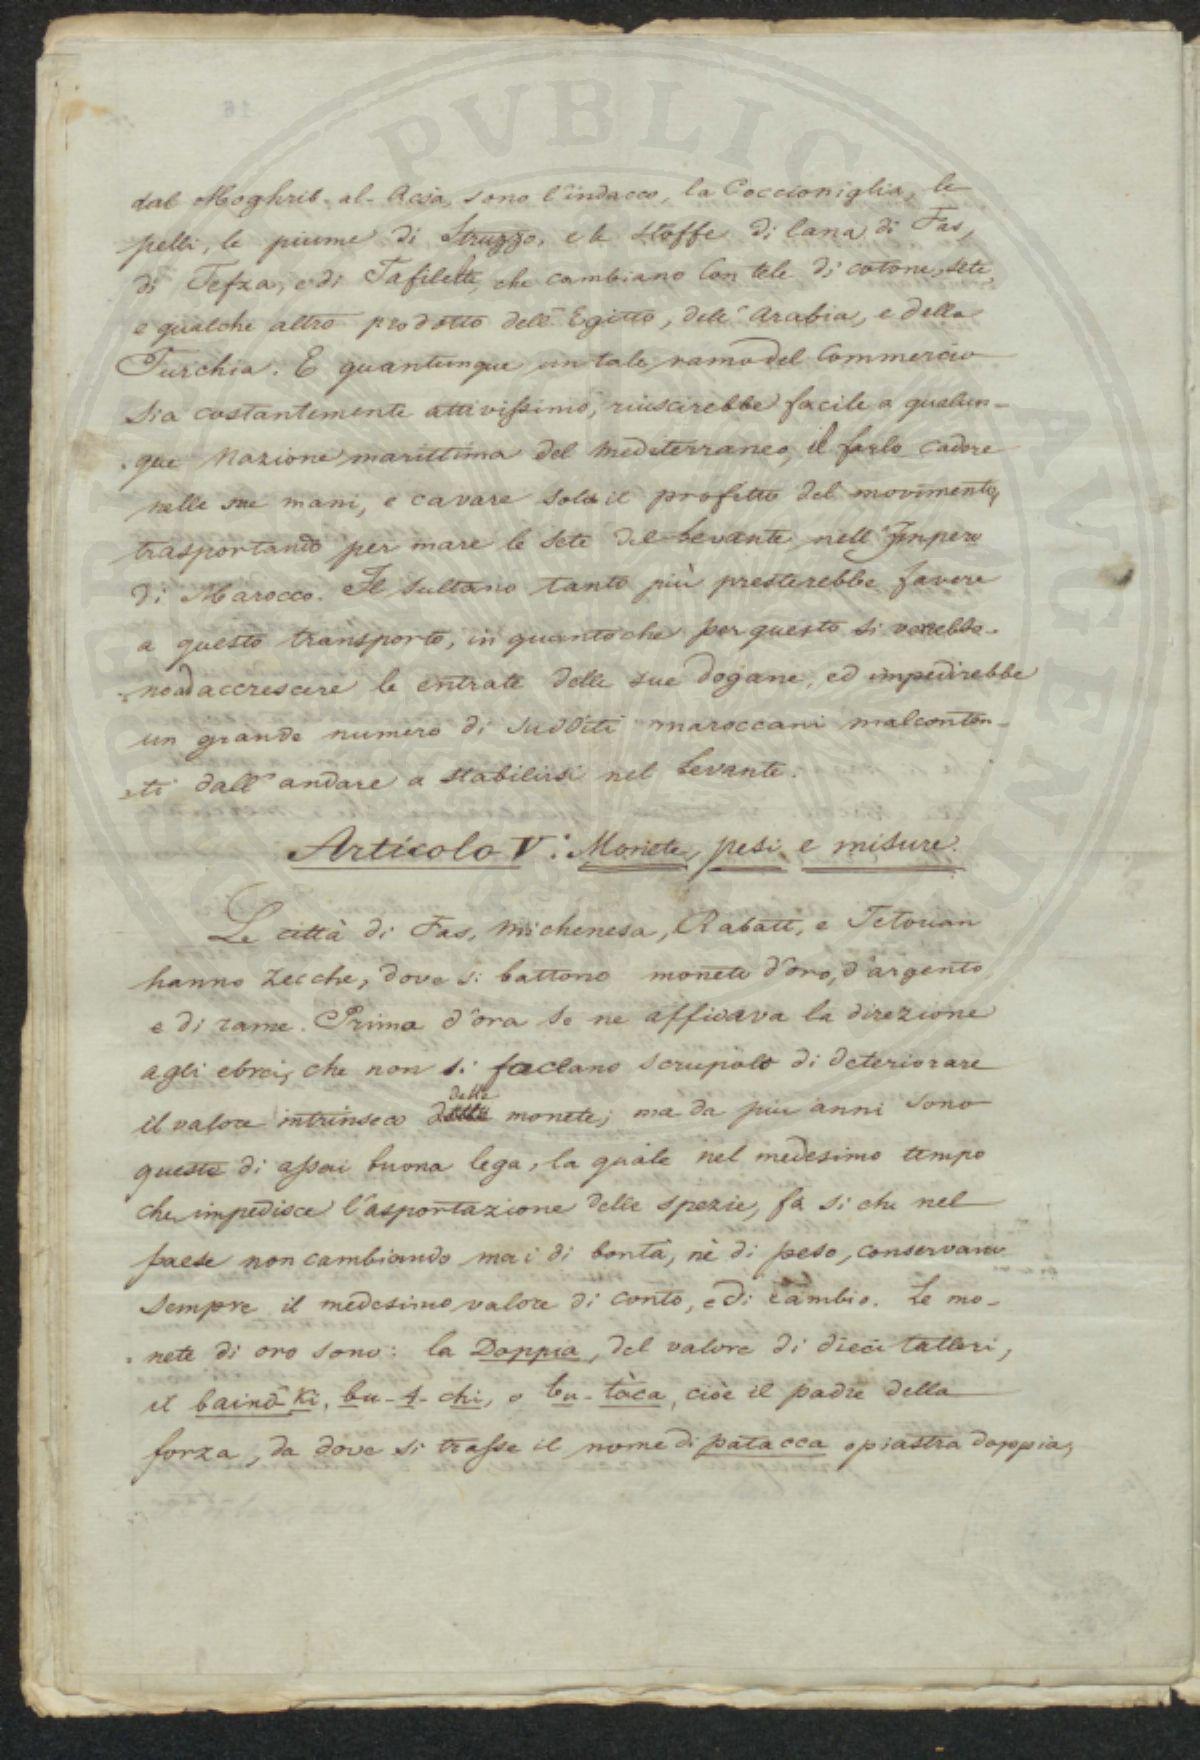 dal Moghrib-al-Acsa, sono l'indacco, la Coccioniglia, le
pelli, le piume di Struzzo, e le stoffe di lana di Fas,
di Tefza, e di Tafilette, che cambiano con tele di cotone, sete,
e qualche altro prodotto dell'Egitto, dell'Arabia, e della
Turchia. E quantunque un tale ramo del Commercio
sia costantemente attivissimo, riuscirebbe facile a qualun-
que Nazione marittima del mediterraneo, il farlo cadere
nelle sue mani, e cavare sola il profitto del movimento,
trasportando per mare le sete del Levante nell'Impero
di Marocco. Il sultano tanto più presterebbe favore
a questo transporto, in quantoche per questo si verebbe-
no ad accrescere le entrate delle sue dogane, ed impedirebbe
un grande numero di sudditi maroccani malconten-
ti dall'andare a stabilirsi nel Levante.
Articolo V: Monete, pesi e misure.
Le città di Fas, Michenesa, Rabatt, e Tetouan
hanno zecche, dove si battono monete d'oro, d'argento
e di rame. Prima d'ora se ne affidava la direzione
agli ebrei, che non si faceano scrupolo di deteriorare
il valore intrinseco delle monete; ma da più anni sono
queste di assai buona lega, la quale nel medesimo tempo
che impedisce l'asportazione delle spezie, fa si che nel
paese non cambiando mai di bontà, nè di peso, conservano
sempre il medesimo valore di conto, e di cambio. Le mo-
nete di oro sono: la Doppia, del valore di dieci talleri,
il baind Ki, bu-t-chi, o bu-tàca, cioè il padre della
forza, da dove si trasse il nome di patacca o piastra doppia,
PVBLIC